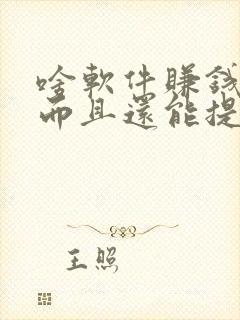 啥軟件賺錢
而且還能提
王照